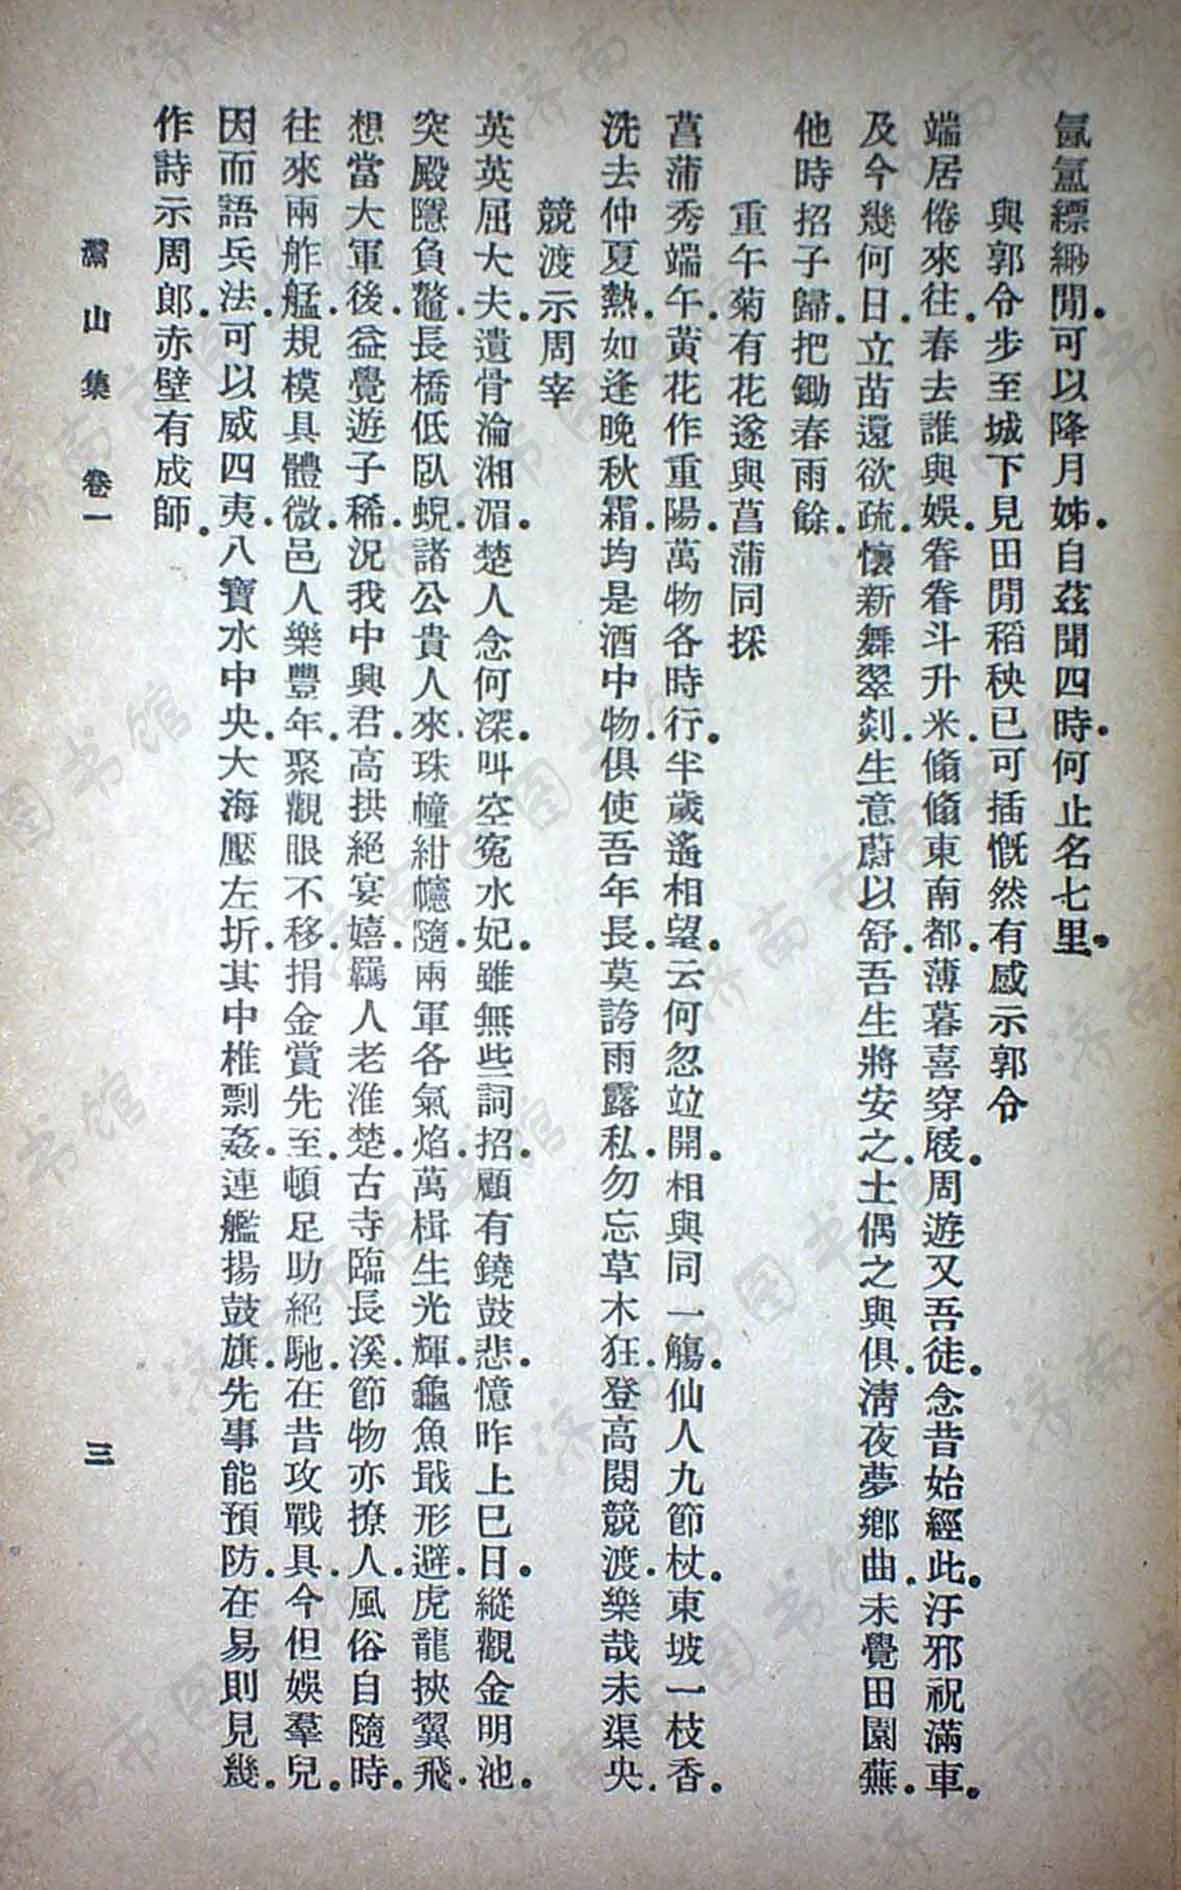 氤氳縹緲間可以降月姊自茲聞四時何止名七里
與郭令步至城下見田間稻秧已可插慨然有感示郭令
端居倦來往春去誰與娛眷眷斗升米翛翛東南都薄暮喜穿屐周遊又吾徒念昔始經此汙邪祝滿車
及今幾何日立苗還欲疏懷新舞翠剡生意蔚以舒吾生將安之土偶之與俱清夜夢鄉曲未覺田園蕪
他時招子歸把鋤春雨餘
重午菊有花遂與菖蒲同採
菖蒲秀端午黃花作重陽萬物各時行半歲遙相望云何忽竝開相與同一觴仙人九節杖東坡一枝香
洗去仲夏熱如逢晚秋霜均是酒中物俱使吾年長莫誇雨露私勿忘草木狂登高閱競渡樂哉未渠央
競渡示周宰
英英屈大夫遺骨淪湘湄楚人念何深叫空冤水妃雖無些詞招顧有鐃鼓悲憶昨上巳日縱觀金明池
突殿隱負鼇長橋低臥蜺諸公貴人來珠幢紺幰隨兩軍各氣焰萬楫生光輝龜魚戢形避虎龍挾翼飛
想當大軍後益覺遊子稀況我中興君高拱絕宴嬉羈人老淮楚古寺臨長溪節物亦撩人風俗自隨時
往來兩舴艋規模具體微邑人樂豐年聚觀眼不移捐金賞先至頓足助絕馳在昔攻戰具今但娛羣兒
因而語兵法可以威四夷八寶水中央大海壓左圻其中椎剽姦連艦揚鼓旗先事能預防在易則見幾
作詩示周郎赤壁有成師
灊山集 卷一 三
济南市图书馆